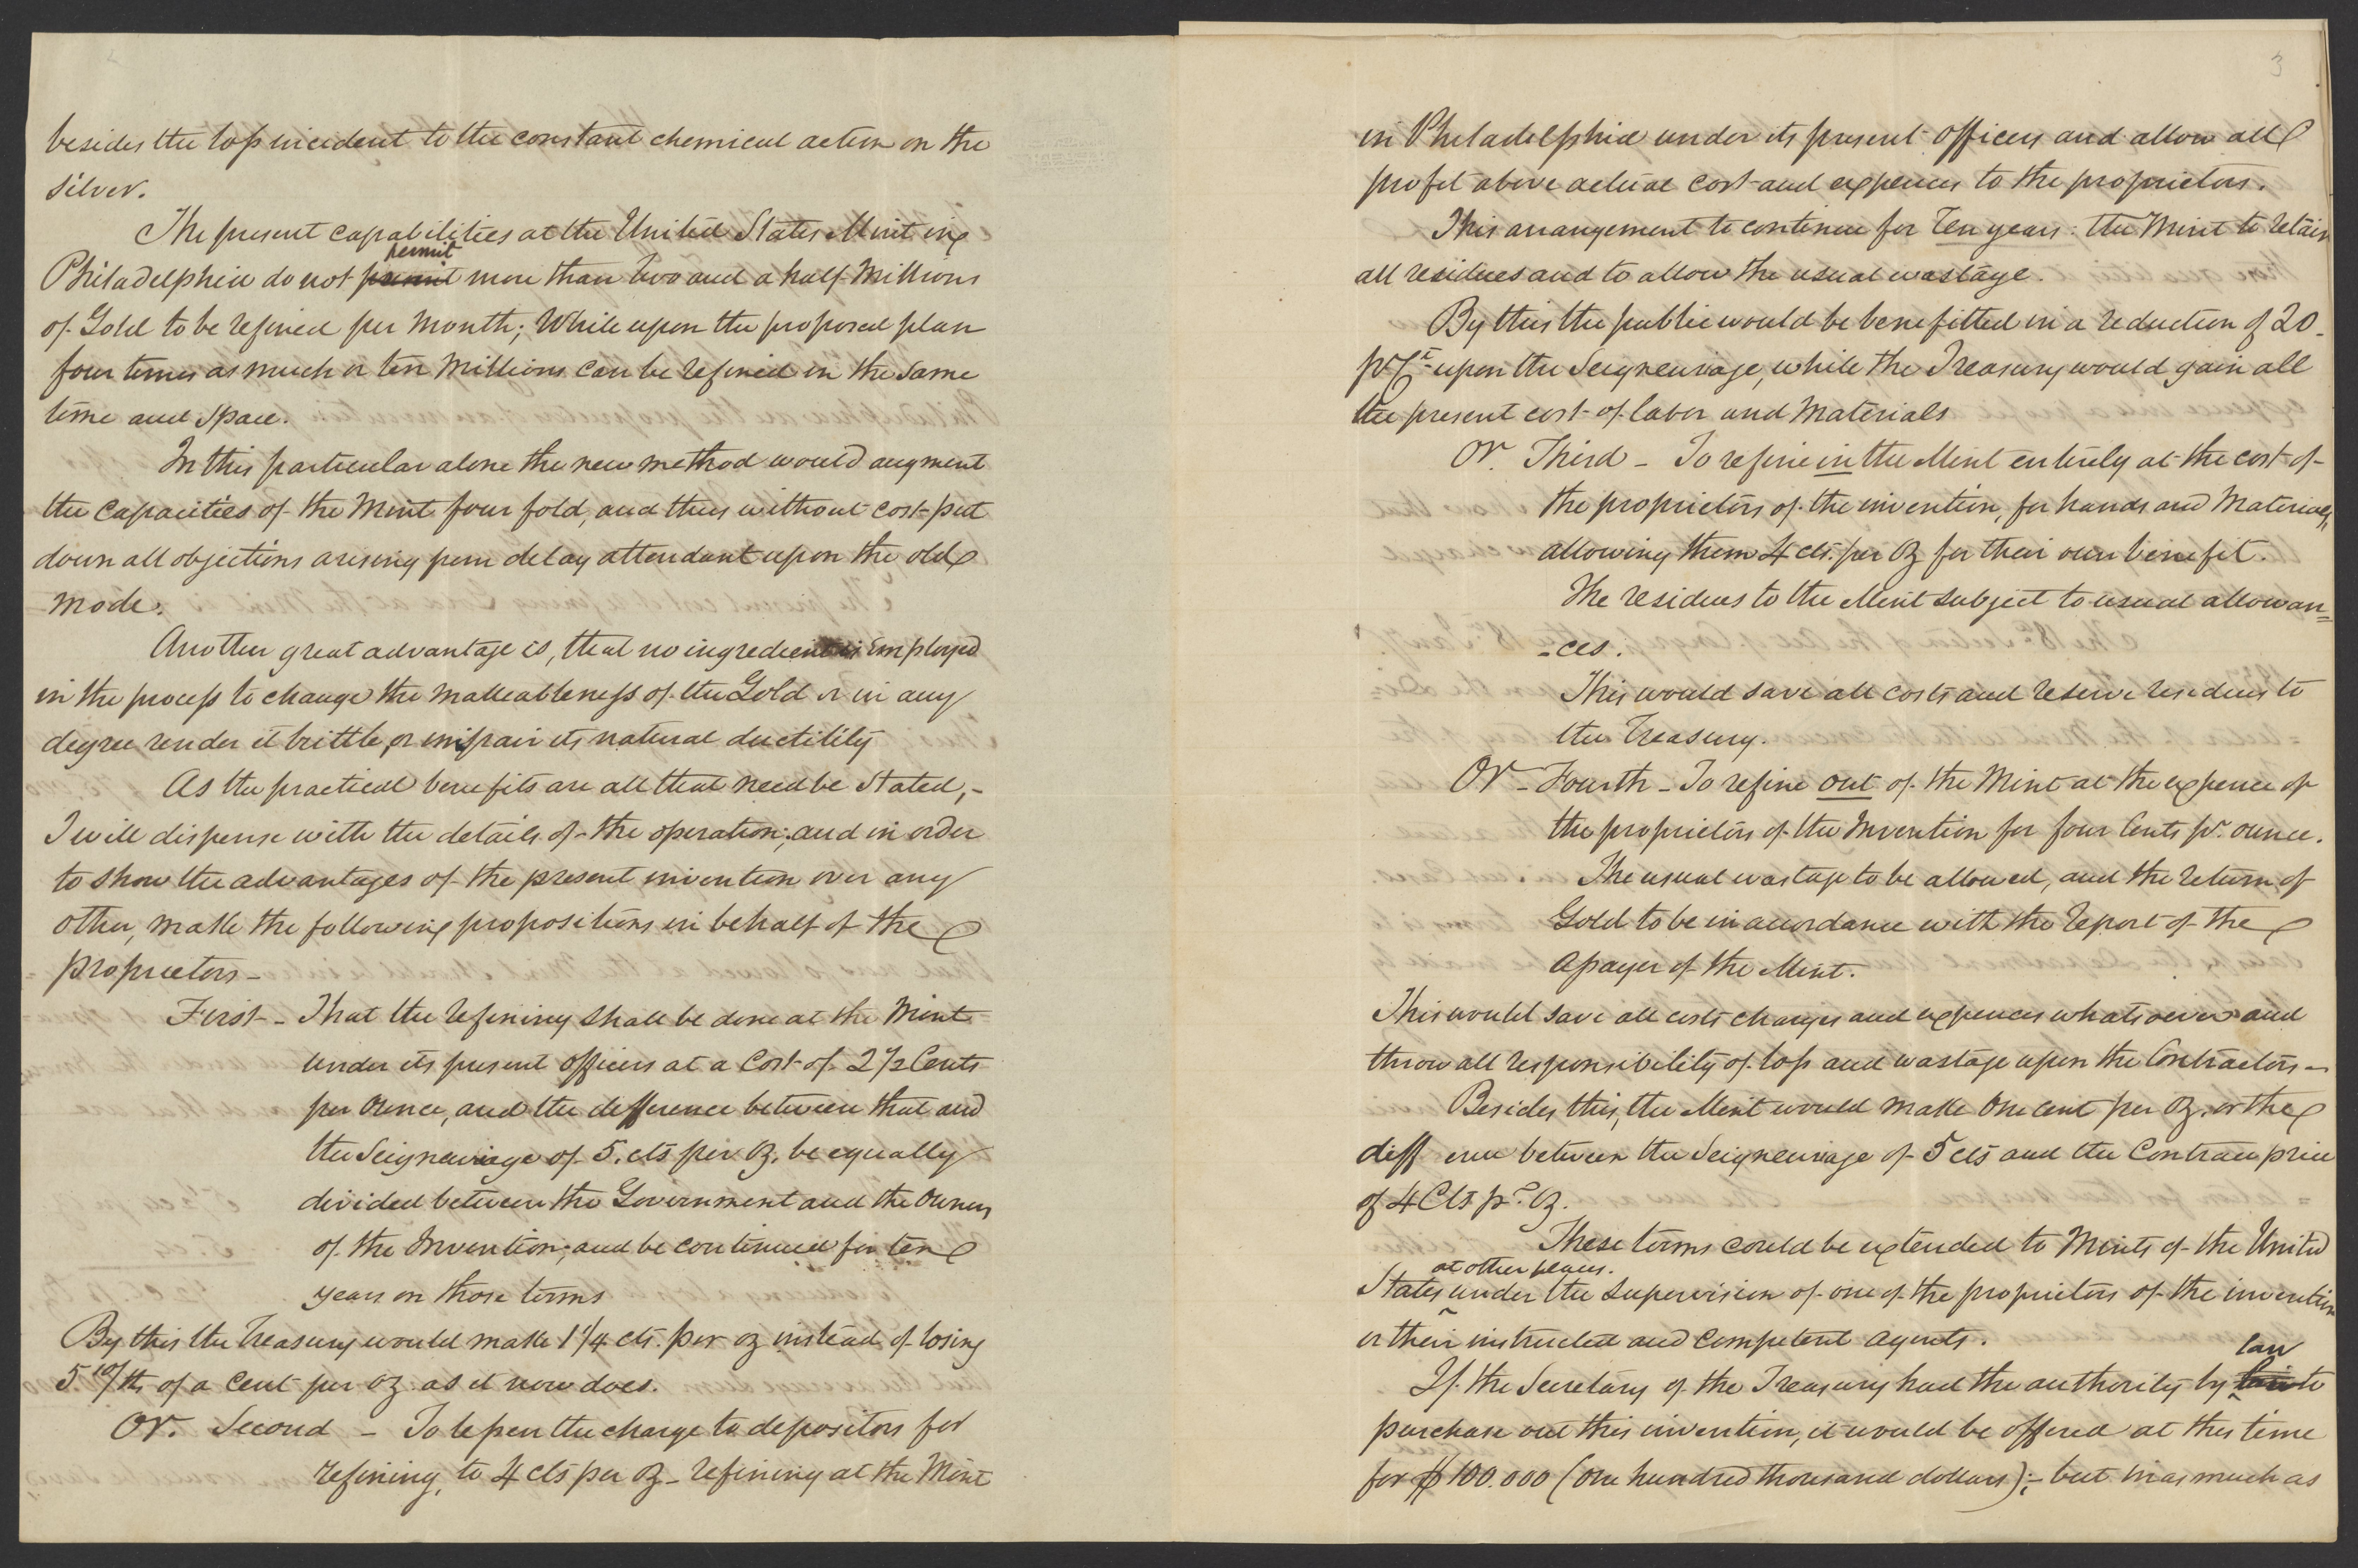 besides the loss incident to the constant chemical action on the
silver.
The present capabilities at the United States Mint in
permit
Philadelphia do not permit more than two and a half Millions
of Gold to be refined per Month; While upon the proposed plan
four times as much or ten Millions can be refined in the same
time and space.
In this particular alone the new method would augment
the capacities of the Mint four fold, and thus without cost put
down all objections arising from delay attendant upon the old
mode.
Another great advantage is, that no ingredient is employed
in the process to change the malleableness of the Gold or in any
degree render it brittle, or impair its natural ductility
As the practical benefits are all that need be stated,-
I will dispense with the details of the operation; and in order
to show the advantages of the present invention over any
other, make the following propositions in behalf of the
proprietors-
First - That the refining shall be done at the Mint
under its present officers at a Cost of 2 1/2 Cents
per Ounce, and the difference between that and
the Seigneurage of 5. cts per Oz, be equally
divided between the Government and the Owners
of the Invention; and be continued for ten
years on those terms
By this the Treasury would make 1 1/4 cts. per oz instead of losing
5 10/ths of a Cent per oz as it now does.
Or. Second - To lessen the charge to depositors for
refining, to 4 cts per oz - refining at the Mint
3
in Philadelphia under its present officers and allow all
profit above actual cost and expences to the proprietors.
This arrangement to continue for Ten years: the Mint to retain
all residues and to allow the usual wastage.
By this the public would be benefitted in a reduction of 20
pr Ct upon the Seigneurage, while the Treasury would gain all
the present cost of labor and Materials
Or. Third - To refine in the Mint entirely at the cost of
the proprietors of the invention, for hands and Materials,
allowing them 4 cts. per Oz for their own benefit.
The residues to the Mint subject to usual allowan=
-ces.
This would save all costs and reserve residues to
the Treasury.
Or - Fourth - To refine out of the Mint at the expence of
the proprietors of the Invention for four Cents pr. ounce.
The usual wastage to be allowed, and the return of
Gold to be in accordance with the report of the
Assayer of the Mint.
This would save all costs charges and expences whatsoever and
throw all responsibility of loss and wastage upon the Contractors -
Besides this, the Mint would make One cent per Oz. or the
diff ence between the Seigneurage of 5 cts and the Contract price
of 4 Cts pr. Oz.
These terms could be extended to Mints of the United
at other places.
States under the supervision of one of the proprietors of the invention
or their instructed and competent agents.
law
If the Secretary of the Treasury had the authority by to
purchase out this invention, it would be offered at this time
for $100.000 (One hundred thousand dollars);- but inasmuch as